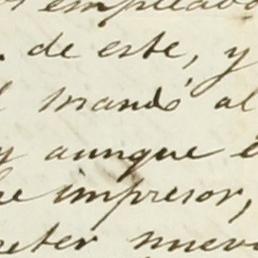 empleado
de este, y
mandó al
y aunque e
impresor,
eter nueva